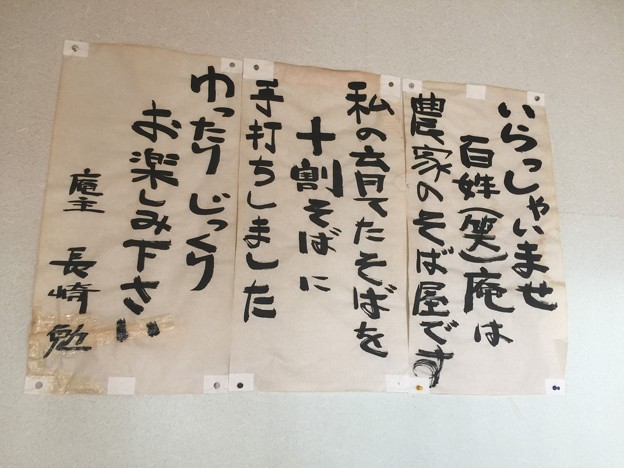 いらっしゃいませ
百姓(笑)庵は
農家のそば屋です
私の育てたそばを
十割そばに
手打ちしました
ゆったりじっくり
お楽しみ下さい
庵主 長崎 勉